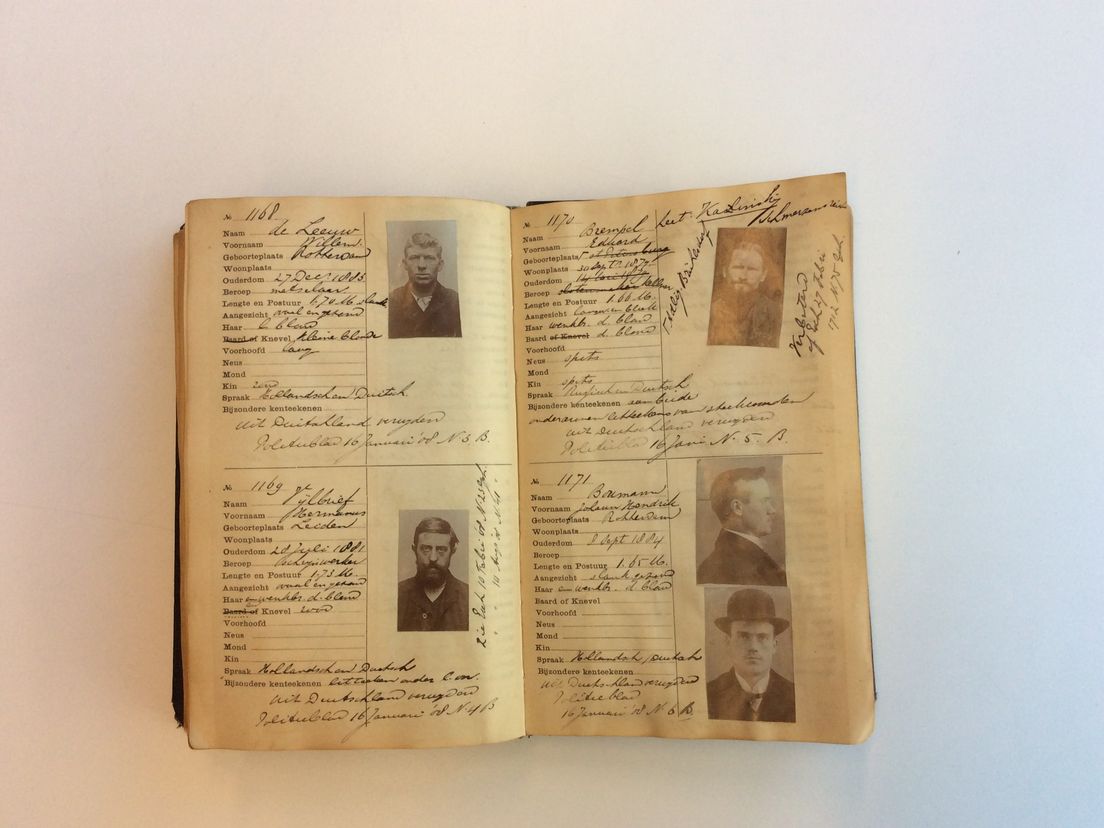 № 1168
Naam de Leeuw
Voornaam Willem
Geboorteplaats Rotterdam
Woonplaats
Ouderdom 27 Dec. 1883
Beroep metselaar
Lengte en Postuur 1.70 M. slank
Aangezicht ovaal en gezond
Haar d. blond
Baard of Knevel kleine blonde
Voorhoofd laag
Neus
Mond
Kin rond
Spraak Hollandsch en Duitsch
Bijzondere kenteekenen
uit Duitschland verwezen
Politieblad 16 Januari '08 N. 3, B.
№ 1169
Naam Pijlbrief
Voornaam Hermanus
Geboorteplaats Leiden
Woonplaats
Ouderdom 28 Juli 1881
Beroep
Lengte en Postuur 1.73 M.
Aangezicht ovaal en gezond
Haar en wenkbr. d. blond
Baard of Knevel rood
Voorhoofd
Neus
Mond
Kin
Spraak Hollandsch en Duitsch
Bijzondere kenteekenen litteeken onder
uit Duitschland verwezen
Politieblad 16 Januari '08 N. 4 B
Zie 10 Febr. '08 N. 23
№ 1170
Naam Brempel
Voornaam Eduard
Geboorteplaats St Petersburg
Woonplaats
Ouderdom
Beroep slotenmaker
Lengte en Postuur 1.66 M.
Aangezicht
Haar wenkbr. d. blond
Baard of Knevel d. blond
Voorhoofd
Neus spits
Mond
Kin spits
Spraak en Duitsch
Bijzondere kenteekenen aan beide
onderarmen litteekens van steekwonden
uit Duitschland verwezen
Politieblad 16 Jani N. 5. B.
Kazlinski
27 Febr.
1912 N. 75
№ 1171
Naam Boumann
Voornaam Johann Hendrik
Geboorteplaats Rotterdam
Woonplaats
Ouderdom 8 Sept 1884
Beroep
Lengte en Postuur 1.65 M.
Aangezicht slank gezond
Haar en wenkbr. d. blond
Baard of Knevel
Voorhoofd
Neus
Mond
Kin
Spraak Hollandsch, Duitsch
Bijzondere kenteekenen
uit Duitschland verwezen
Politieblad
16 Januari '08 N. 6 B.